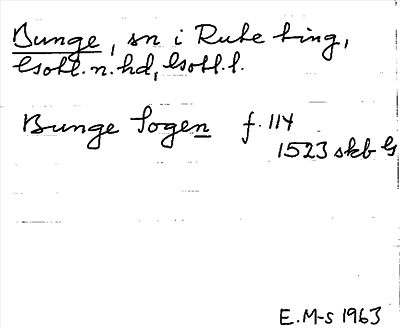 Bunge, sn i Rute ting,
Gotl. n. hd, Gotl. l.
Bunge Sogen f. 114
1523 skb G
E. M-s 1963